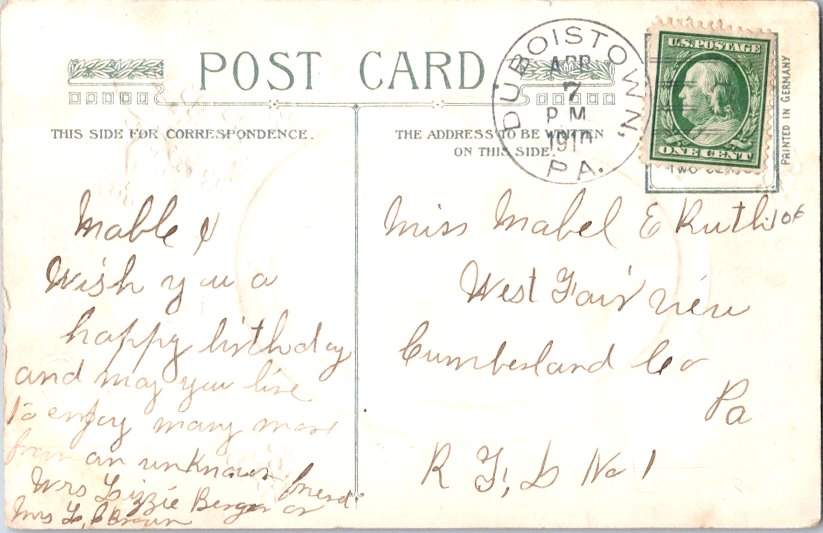 POST CARD
THIS SIDE FOR CORRESPONDENCE.
THE ADDRESS TO BE WRITTEN
ON THIS SIDE.
DUBOISTOWN,
APR
7
PM
1910
PA.
U.S. POSTAGE
ONE CENT
TWO
PRINTED IN GERMANY
Mable I
Wish you a
happy birthday
and may you live
To enjoy many more
from an unknown friend
Mrs Lizzie Berger or
Mrs L, Brown
Miss Mabel E Ruth
10¢
West Fairview
Cumberland Co
Pa
R F, D No 1